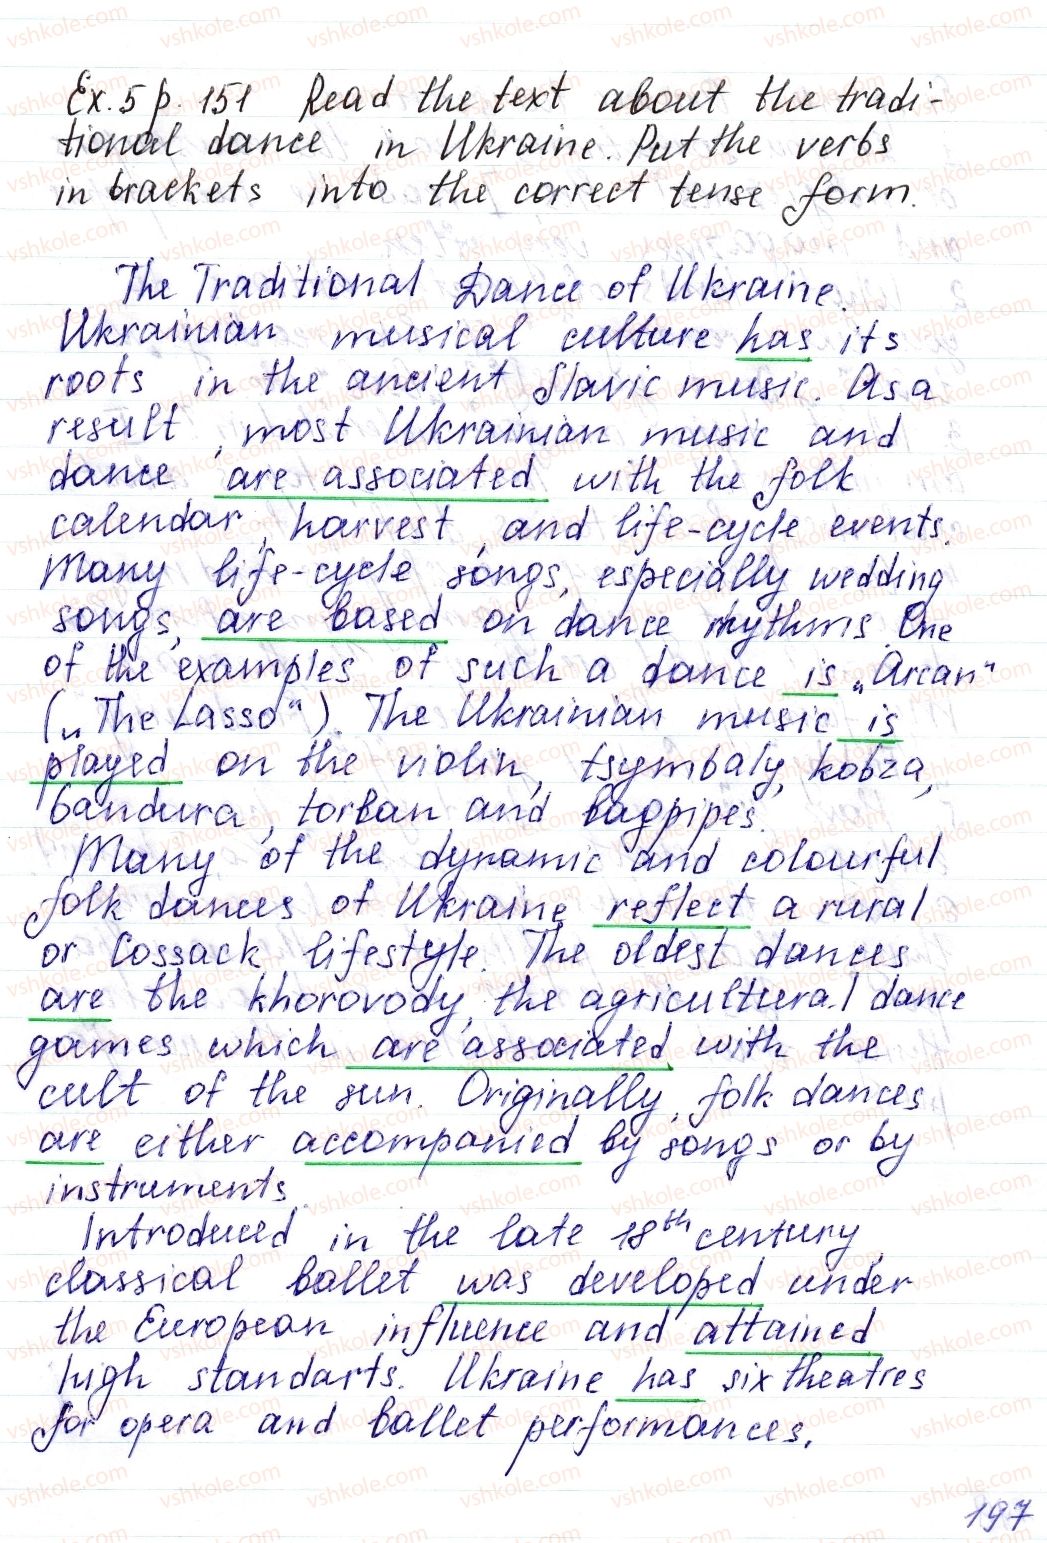 Ex. 5 p. 151 Read the text about the tradi-
tional dance in Ukraine. Put the verbs
in brackets into the correct tense form.
The Traditional Dance of Ukraine.
Ukrainian musical culture has its
roots in the ancient Slavic music. As a
result, most Ukrainian music and
dance are associated with the folk
calendar, harvest, and life-cycle events.
Many life-cycle songs, especially wedding
songs, are based on dance rhythms. One
of the examples of such a dance is „Arcan“
(„The Lasso“). The Ukrainian music is
played on the violin, tsymbaly, kobza,
bandura, torban and bagpipes.
Many of the dynamic and colourful
folk dances of Ukraine reflect a rural
or Cossack lifestyle. The oldest dances
are the khorovody, the agricultural dance
games which are associated with the
cult of the sun. Originally, folk dances
are either accompanied by songs or by
instruments.
Introduced in the late 18th century,
classical ballet was developed under
the European influence and attained
high standarts. Ukraine has six theatres
for opera and ballet performances.
197
vshkole.com